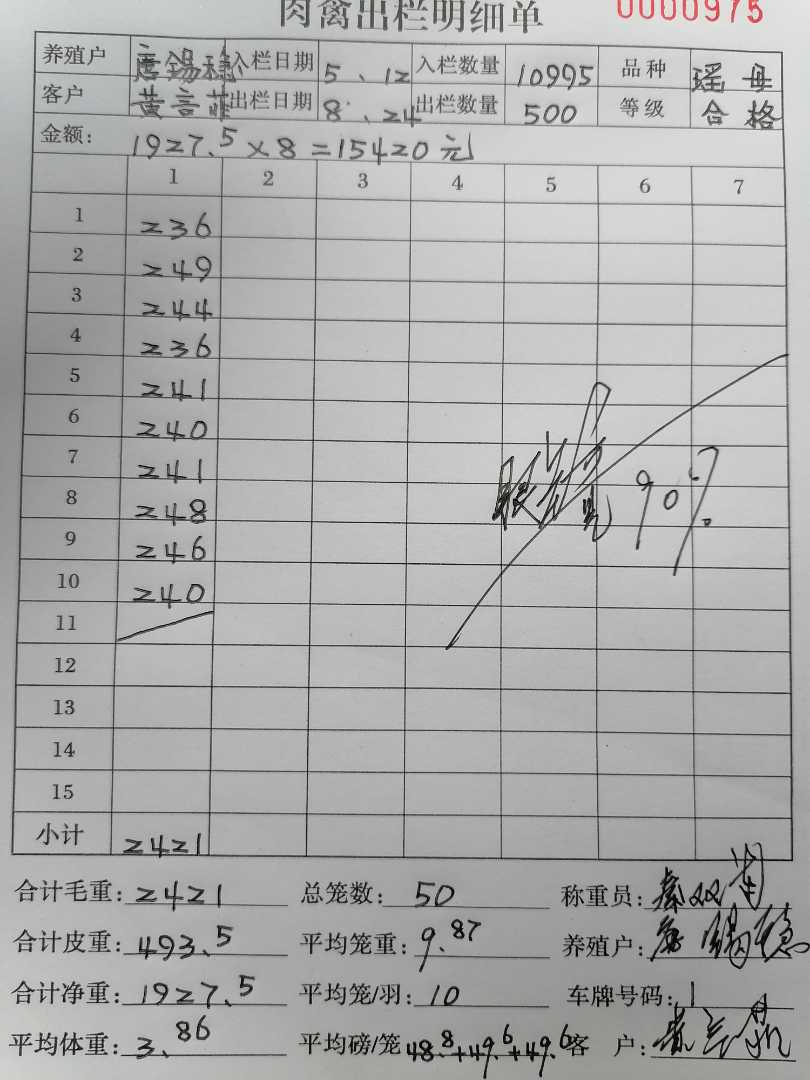 肉禽出栏明细单 0000975
养殖户 唐锡穏 入栏日期 5、12 入栏数量 10995 品种 瑶母
客户 黄言菲 出栏日期 8、24 出栏数量 500 等级 合格
金额: 1927.5×8=15420元
1 2 3 4 5 6 7
1 236
2 249
3 244
4 236
5 241
6 240
7 241
8 248
9 246
10 240
90%
11
12
13
14
15
小计 2421
合计毛重: 2421 总笼数: 50 称重员:
合计皮重: 493.5 平均笼重: 9.87 养殖户:
合计净重: 1927.5 平均笼/羽: 10 车牌号码: 1
平均体重: 3.86 平均磅/笼 48.8+49.6+49.6 客户: